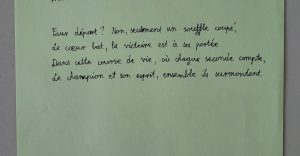 Faux départ ? Non, seulement un souffle coupé,
Le cœur bat, la victoire est à sa portée
Dans cette course de vie, où chaque seconde compte,
Le champion et son esprit, ensemble ils surmontent.